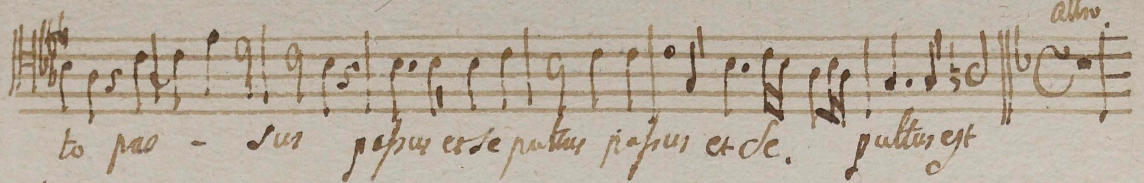 allo.
to pas - sus passus et se pultus passus et se. pultus est